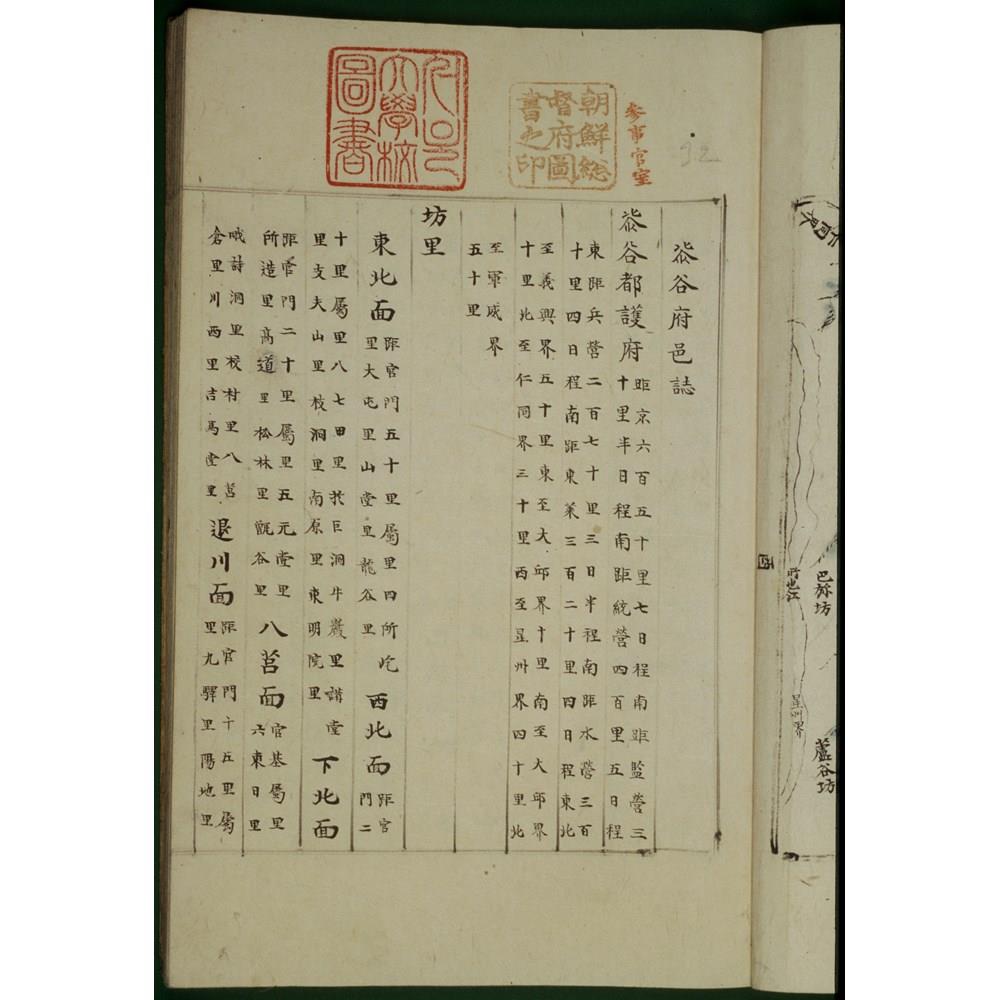 参事官室
朝鮮総
督府圖
書之印
大學校
圖書
柒谷府邑誌
柒谷都護府
距京六百五十里七日程南距監營三
十里半日程南距統營四百里五日程
東距兵營二百七十里三日半程南距水營三百
十里四日程南距東萊三百二十里四日程東北
至義興界五十里東至大邱界十里南至大邱界
十里北至仁同界三十里西至星州界四十里北
至軍威界
五十里
坊里
東北面
距官門五十里屬里四所屹
里大屯里山堂里龍谷里
西北面
距官
門二
十里屬里八七田里巨洞牛巖里講堂
里支夫山里枝洞里南原里東明院里
下北面
距官門二十里屬里五元堂里
所造里高道里松林里甑谷里
八莒面
官基屬里
六東日里
哦詩洞里校村里八莒
倉里川西里吉馬堂里
退川面
距官門十五里屬
里九驛里陽地里
巴弥坊
所也江
星州界
蘆谷坊